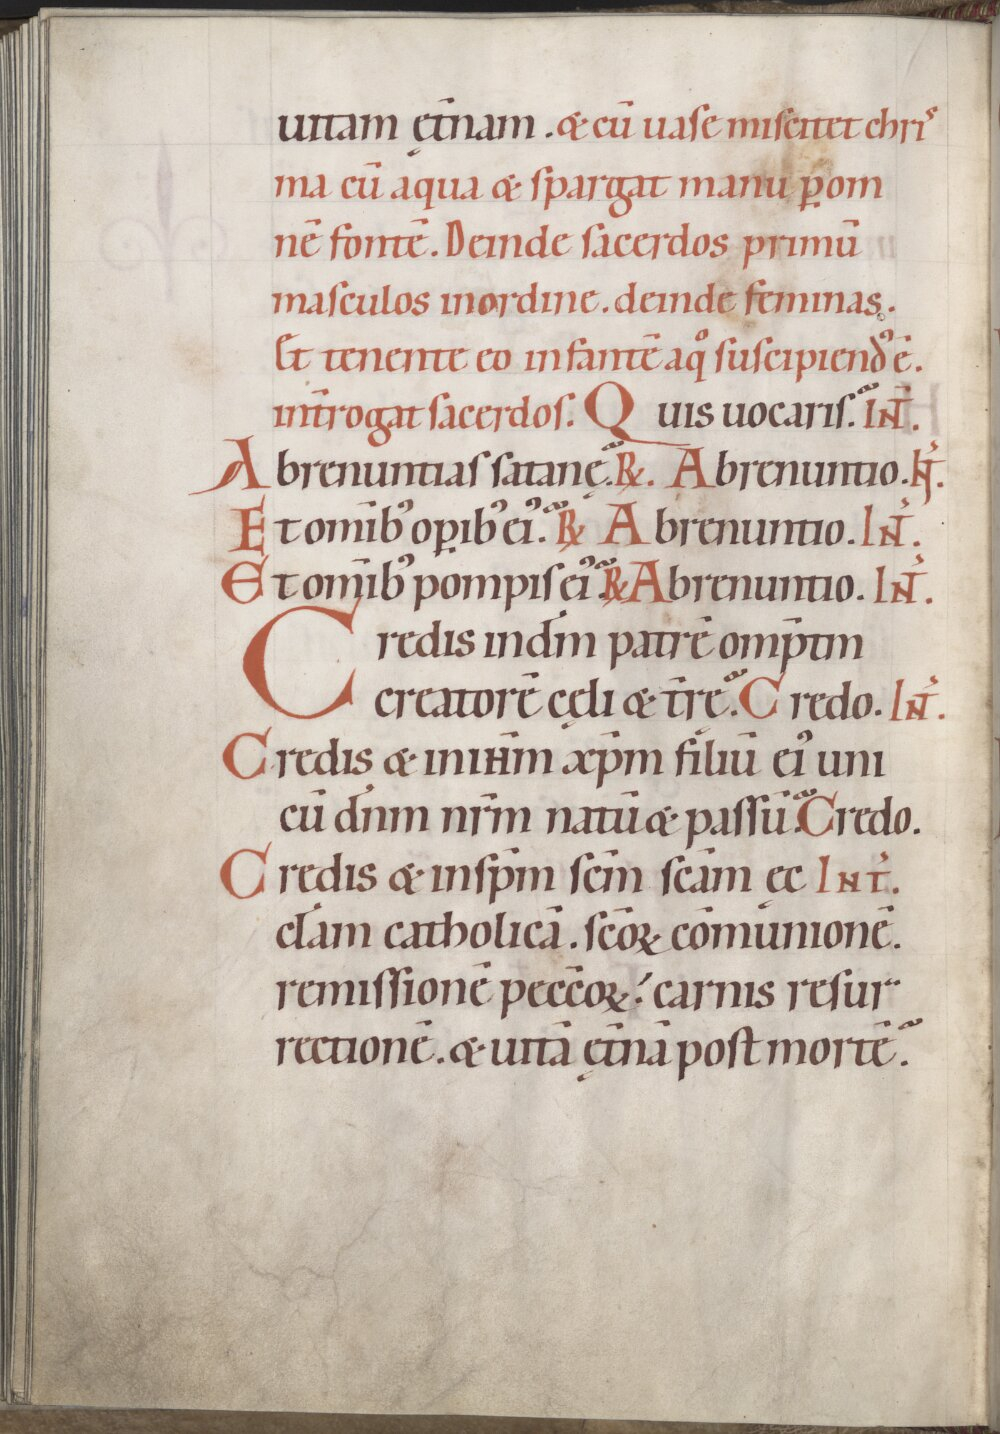 uitam ęt̄nam . & cū uase misceitet chris
ma cū aqua & spargat manu ꝑ om
nē fontē. Deinde sacerdos primū
masculos inordine. deinde feminas.
Et tenente eo infantē a qͦ suscipiendꝰ ē.
int̄rogat sacerdos. Quis uocaris. INT̄.
Abrenuntias satanę. ℞. Abrenuntio. IN̄T.
Et om̄ibꝰ oꝑibꝰ eiꝰ. ℞ Abrenuntio. INT̄.
Et om̄ibꝰ pompis eiꝰ. ℞ Abrenuntio. INT̄.
Credis in dm̄ patrē omp̄tm
creatorē cęli & t̄rę. Credo. INT̄.
Credis & in iHm̄ xp̄m filiū eiꝰ uni
cū dn̄m nr̄m natū & passū. Credo.
Credis & in sp̄m scm̄ scām ęc INT̄.
clām catholicā. scōꝝ cōmunionē.
remissionē peccōꝝ. carnis resur
rectionē. & uitā ęt̄nā post mortē.